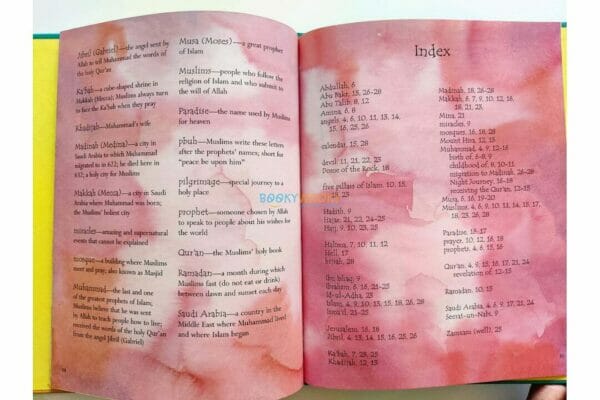 Jibril (Gabriel)—the angel sent by
Allah to tell Muhammad the words of
the holy Qur'an
Ka'bah—a cube-shaped shrine in
Makkah (Mecca); Muslims always turn
to face the Ka'bah when they pray
Khadijah—Muhammad's wife
Madinah (Medina)—a city in
Saudi Arabia to which Muhammad
migrated to in 622; he died here in
632; a holy city for Muslims
Makkah (Mecca)—a city in Saudi
Arabia where Muhammad was born;
the Muslims' holiest city
miracles—amazing and supernatural
events that cannot be explained
mosque—a building where Muslims
meet and pray; also known as Masjid
Muhammad—the last and one
of the greatest prophets of Islam;
Muslims believe that he was sent
by Allah to teach people how to live;
received the words of the holy Qur'an
from the angel Jibril (Gabriel)
Musa (Moses)—a great prophet
of Islam
Muslims—people who follow the
religion of Islam and who submit to
the will of Allah
Paradise—the name used by Muslims
for heaven
pbuh—Muslims write these letters
after the prophets' names; short for
"peace be upon him"
pilgrimage—special journey to a
holy place
BOOKY
prophet—someone chosen by Allah
to speak to people about his wishes for
the world
Qur'an—the Muslims' holy book
Ramadan—a month during which
Muslims fast (do not eat or drink)
between dawn and sunset each day
Saudi Arabia—a country in the
Middle East where Muhammad lived
and where Islam began
Index
Abdullah, 6
Abu Bakr, 15, 26-28
Abu Talib, 8, 12
Amina, 6, 8
angels, 4, 6, 10, 11, 13, 14,
15, 16, 25, 26
calendar, 15, 28
devil, 11, 21, 22, 23
Dome of the Rock, 18
five pillars of Islam, 10, 15,
18, 23
Hadith, 9
Hajar, 21, 22, 24-25
Hajj, 9, 10, 23, 25
Halima, 7, 10, 11, 12
Hell, 17
hijrah, 28
Ibn Ishaq, 9
Ibrahim, 6, 16, 21-25
Id-ul-Adha, 23
Islam, 4, 9, 10, 13, 15, 18, 26, 28
Isma'il, 21-25
Jerusalem, 16, 18
Jibril, 4, 13, 14, 15, 16, 25, 26
Ka'bah, 7, 23, 25
Khadijah, 12, 13
Madinah, 18, 26-28
Makkah, 6, 7, 9, 10, 12, 16,
18, 21, 23,
Mina, 21
miracles, 9
mosques, 16, 18, 28
Mount Hira, 12, 13
Muhammad, 4, 9, 12-16
birth of, 6-8, 9
childhood of, 9, 10-11
migration to Madinah, 26-28
Night Journey, 16-18
receiving the Qur'an, 13-15
Musa, 6, 16, 19-20
Muslims, 4, 6, 9, 10, 11, 14, 15, 17,
18, 23, 26, 28
Paradise, 16-17
prayer, 10, 12, 16, 18
prophets, 4, 6, 15, 16
Qur'an, 4, 9, 14, 15, 16, 21
revelation of, 12-15
Ramadan, 10, 15
Saudi Arabia, 4, 6, 9, 17, 21, 24
Seerat-un-Nabi, 9
Zamzam (well), 25